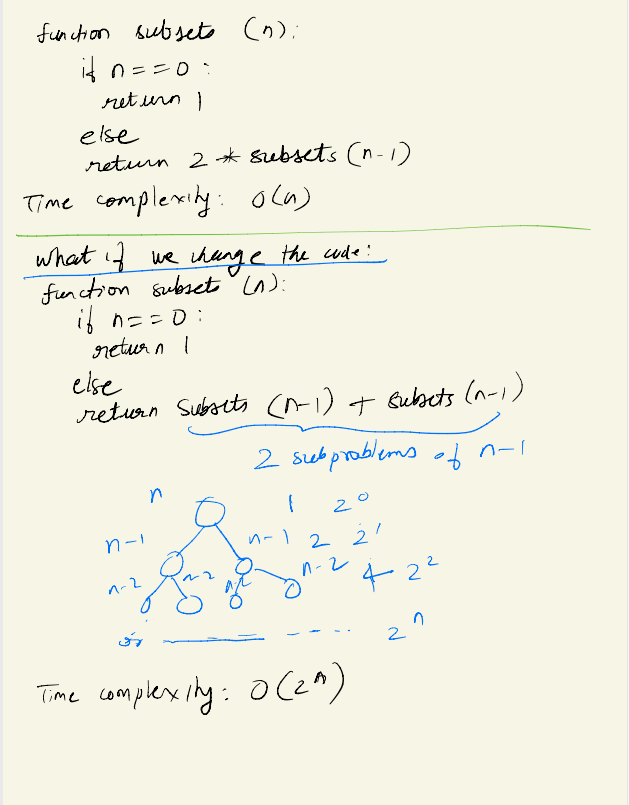 function subsets (n):
if n==0 :
return 1
else
return 2 * subsets (n-1)
Time complexity: O(n)
what if we change the code:
function subset (n):
if n==0 :
return 1
else
return subsets (n-1) + subsets (n-1)
2 subproblems of n-1
n 1 2^0
n-1 n-1 2 2^1
n-2 n-2 n-2 n-2 4 2^2
---- 2^n
Time complexity: O(2^n)